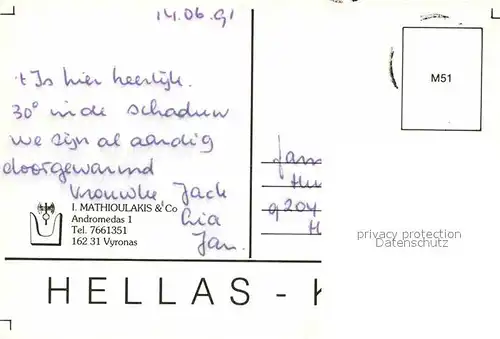 14.06.91
't Is hier heerlijk.
30° in de schaduw
we zijn al aardig
doorgewarmd
Jack
Ria
Jan.
I. MATHIOULAKIS & Co
Andromedas 1
Tel. 7661351
162 31 Vyronas
M51
9204
privacy protection
Datenschutz
HELLAS -